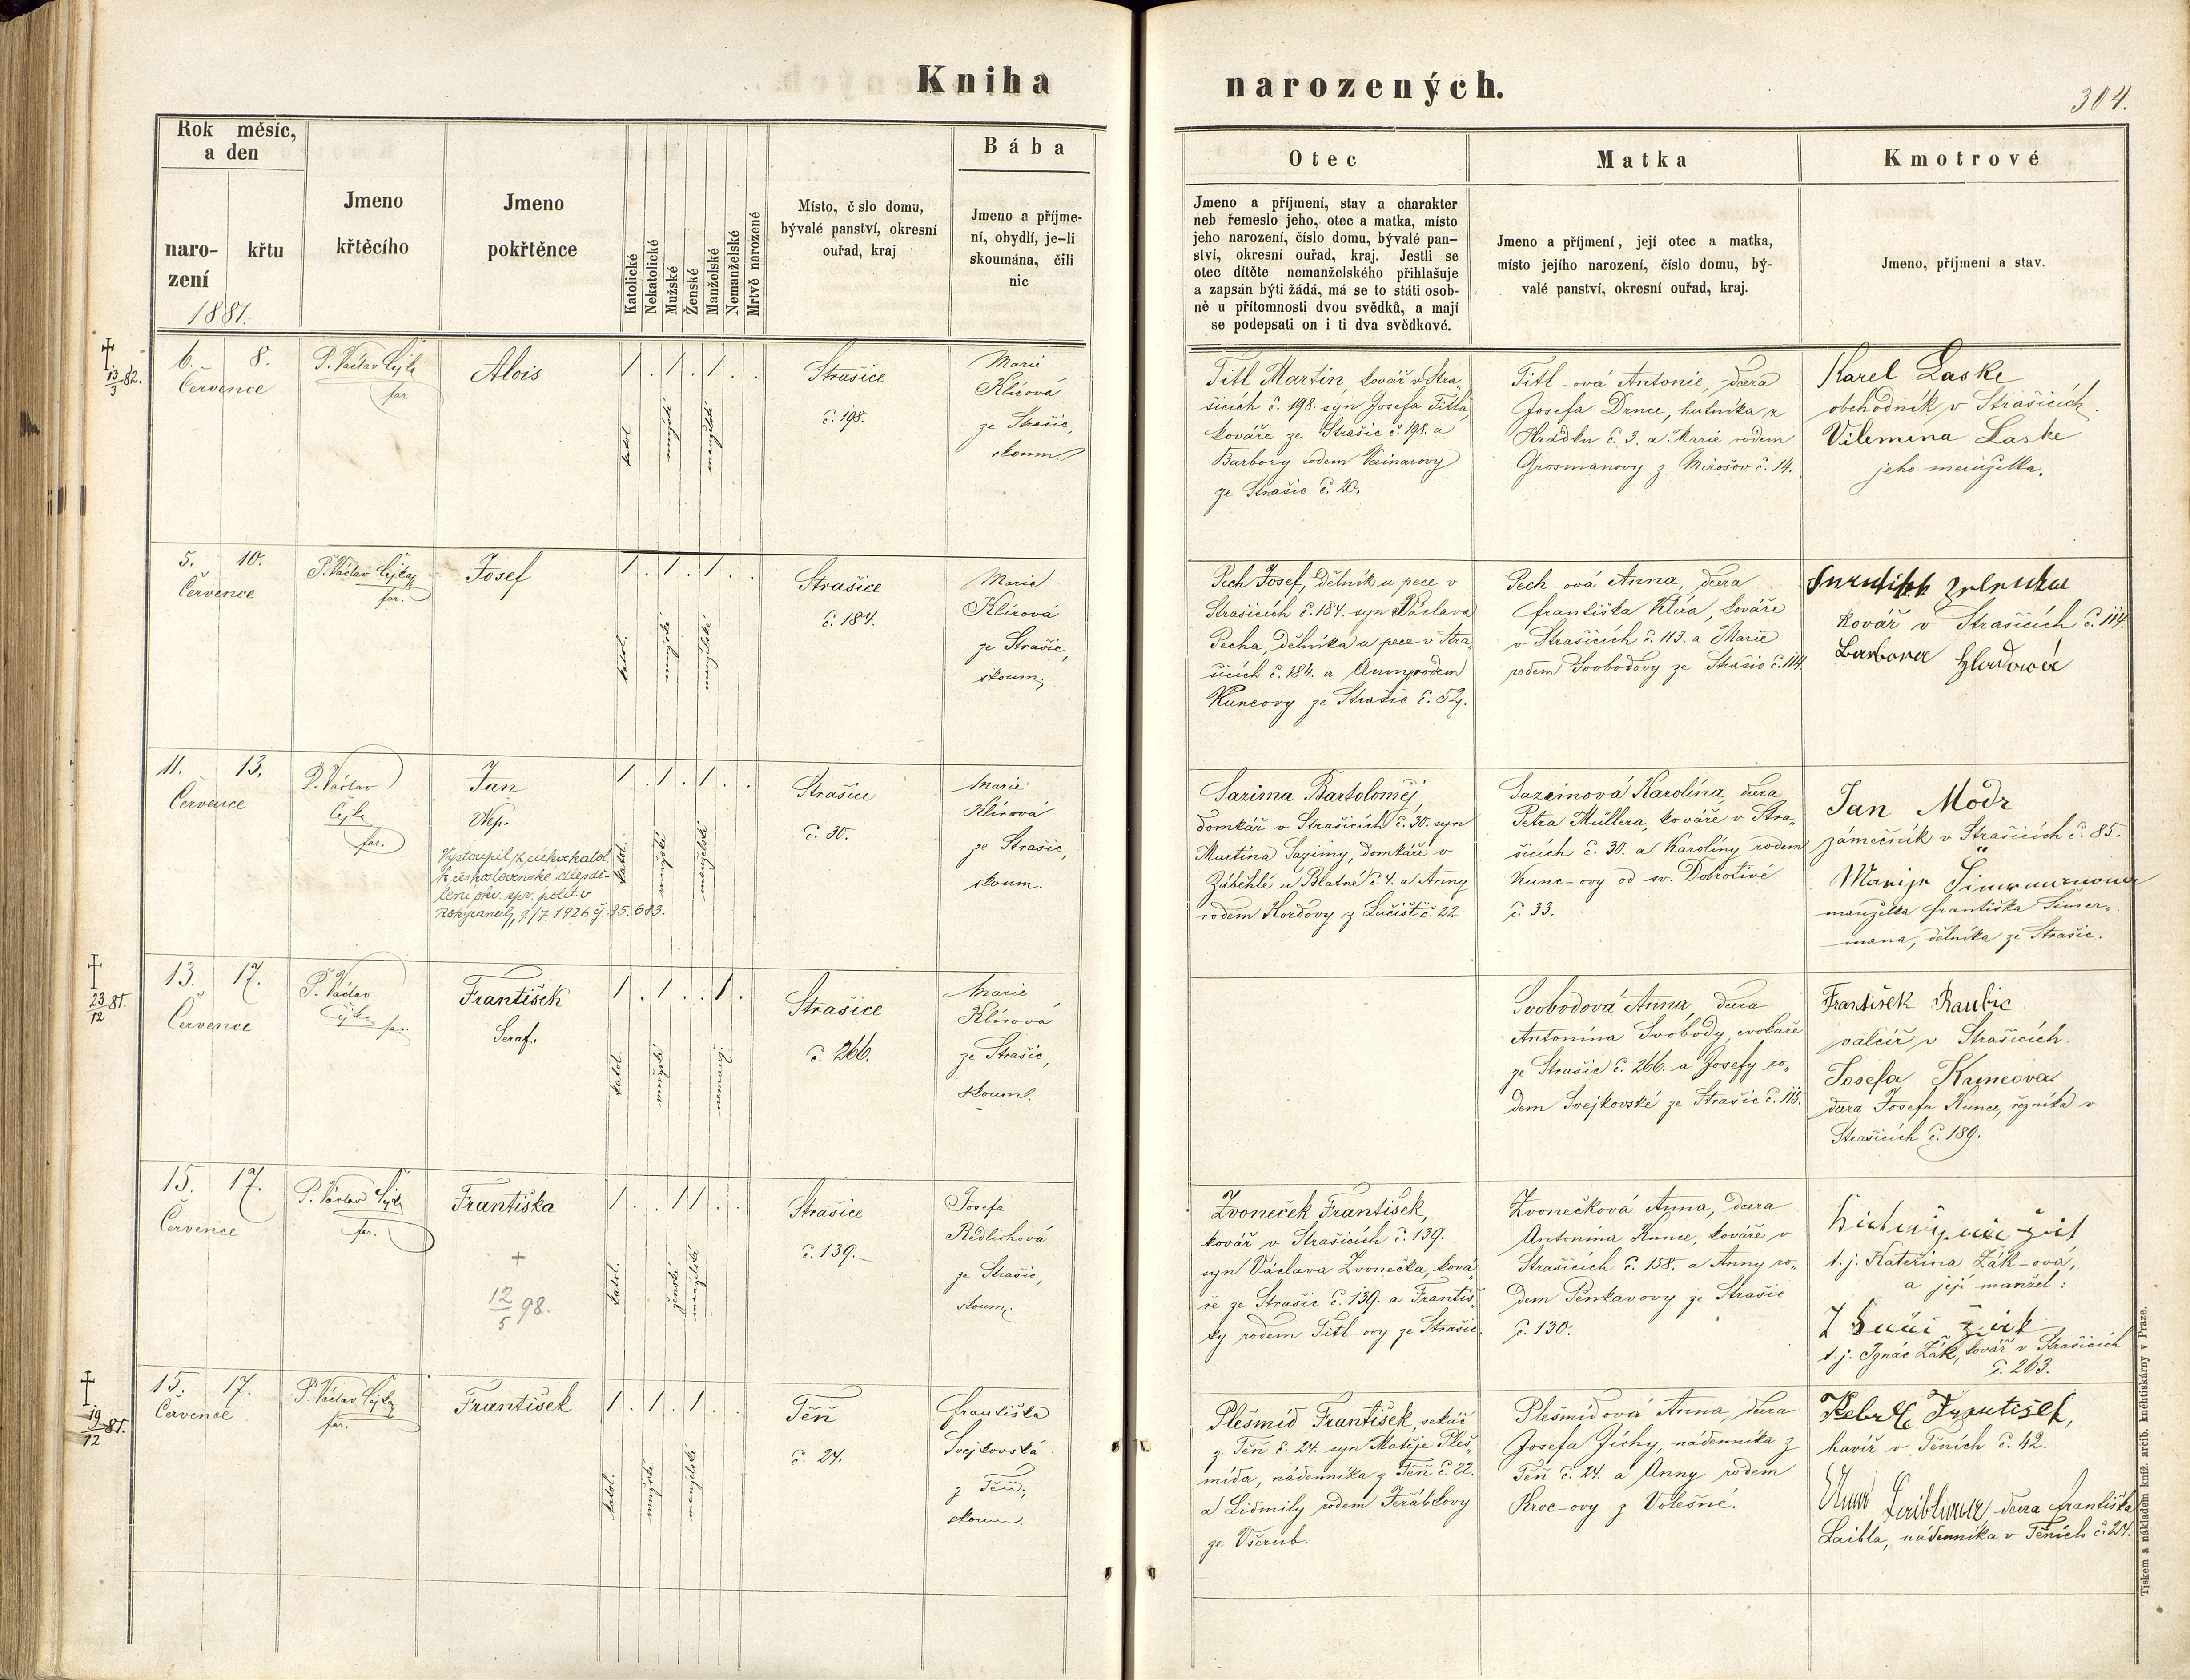 Kniha narozených.
304.
Rok měsíc,
a den
naro-
zení
křtu
1881.
Jmeno
křtěcího
Jmeno
pokřtěnce
Katolické
Nekatolické
Mužské
Ženské
Manželské
Nemanželské
Mrtvě narozené
Místo, č slo domu,
bývalé panství, okresní
ouřad, kraj
Bába
Jmeno a příjme-
ní, obydlí, je-li
skoumána, čili
nic
Otec
Jmeno a příjmení, stav a charakter
neb řemeslo jeho, otec a matka, místo
jeho narození, číslo domu, bývalé pan-
ství, okresní ouřad, kraj. Jestli se
otec dítěte nemanželského přihlašuje
a zapsán býti žádá, má se to státi osob-
ně u přítomnosti dvou svědků, a mají
se podepsati on i ti dva svědkové.
Matka
Jmeno a příjmení, její otec a matka,
místo jejího narození, číslo domu, bý-
valé panství, okresní ouřad, kraj.
Kmotrové
Jmeno, příjmení a stav.
13/3 82.
6. 8.
Července
P. Václav Čejka
far.
Alois
1 . 1 . 1 . .
katol.
mužské
manželské
Strašice
č. 198.
Marie
Klírová
ze Strašic,
skoum.
Titl Martin, kovář v Stra„
šicích č. 198. syn Josefa Titla,
kováře ze Strašic č. 198. a
Barbory rodem Vainarovy
ze Strašic č. 20.
Titl-ová Antonie, dcera
Josefa Drnce, hutníka z
Hrádku č. 3. a Marie rodem
Grosmanovy z Mirošov č. 14.
Karel Laske
obchodník v Strašicích.
Vilemína Laske
jeho manželka.
5. 10.
Července
P. Václav Čejka
far.
Josef
1 . 1 . 1 . .
katol.
mužské
manželské
Strašice
č. 184.
Marie
Klírová
ze Strašic,
skoum.
Pech Josef, dělník u pece v
Strašicích č. 184. syn Václava
Pecha, dělníka u pece v Stra„
šicích č. 184. a Anny rodem
Kuncovy ze Strašic č. 52.
Pech-ová Anna, dcera
Františka Klíra, kováře
v Strašicích č. 113. a Marie
rodem Svobodovy ze Strašic č. 114.
kovář v Strašicích č. 114.
Barbora
11. 13.
Července
P. Václav
Čejka
far.
Jan
Nep.
Vystoupil z církve katol.
k československé dle sdě-
lení okr. spr. polit. v
Rokycanech, 9/7. 1926 č. 35.683.
1 . 1 . 1 . .
katol.
mužské
manželské
Strašice
č. 30.
Marie
Klírová
ze Strašic,
skoum.
Sazima Bartoloměj,
domkář v Strašicích č. 30. syn
Martina Sazimy, domkáře v
Záběhlé u Blatné č. 4. a Anny
rodem Kordovy z Lučišť č. 22.
Sazimová Karolína, dcera
Petra Müllera, kováře v Stra„
šicích č. 30. a Karolíny rodem
Kunc-ovy od sv. Dobrotivé
č. 33.
Jan Modr
zámečník v Strašicích č. 85.
Marije
manželka Františka Simer„
mana, dělníka ze Strašic.
23/12 81.
13. 17.
Července
P. Václav
Čejka far.
František
Seraf.
1 . 1 . . 1 .
katol.
mužské
nemanž.
Strašice
č. 266.
Marie
Klírová
ze Strašic,
skoum.
Svobodová Anna, dcera
Antonína Svobody, cvokaře
ze Strašic č. 266. a Josefy ro„
dem Svejkovské ze Strašic č. 115.
František Raubic
válcíř v Strašicích.
Josefa Kuncova
dcera Josefa Kunce, řezníka v
Strašicích č. 189.
15. 17.
Července
P. Václav Čejka
far.
Františka
+
12/5 98.
1 . . 1 1 . .
katol.
ženské
manželské
Strašice
č. 139.
Josefa
Redlichová
ze Strašic,
skoum.
Zvoneček František,
kovář v Strašicích č. 139.
syn Václava Zvonečka, ková„
ře ze Strašic č. 139. a Františ„
ky rodem Titl-ovy ze Strašic.
Zvonečková Anna, dcera
Antonína Kunce, kováře v
Strašicích č. 158. a Anny ro„
dem Penkavovy ze Strašic
č. 130.
t. j. Kateřina Žák-ová,
a její manžel:
t. j. Ignác Žák, kovář v Strašicích
č. 263.
19/12 81.
15. 17.
Července
P. Václav Čejka
far.
František
1 . 1 . 1 . .
katol.
mužské
manželské
Těň
č. 24.
Františka
Svejkovská
z Těň,
skoum.
Plešmíd František, sekáč
z Těň č. 24. syn Matěje Pleš„
mída, nádenníka z Těň č. 22.
a Lidmily rodem Jeřábkovy
ze Všerub.
Plešmídová Anna, dcera
Josefa Jíchy, nádenníka z
Těň č. 24. a Anny rodem
Kroc-ovy z Volešné.
František,
havíř v Těních č. 42.
dcera Františka
Laibla, nádenníka v Těních č. 24.
Tiskem a nákladem kníž. arcib. knihtiskárny v Praze.